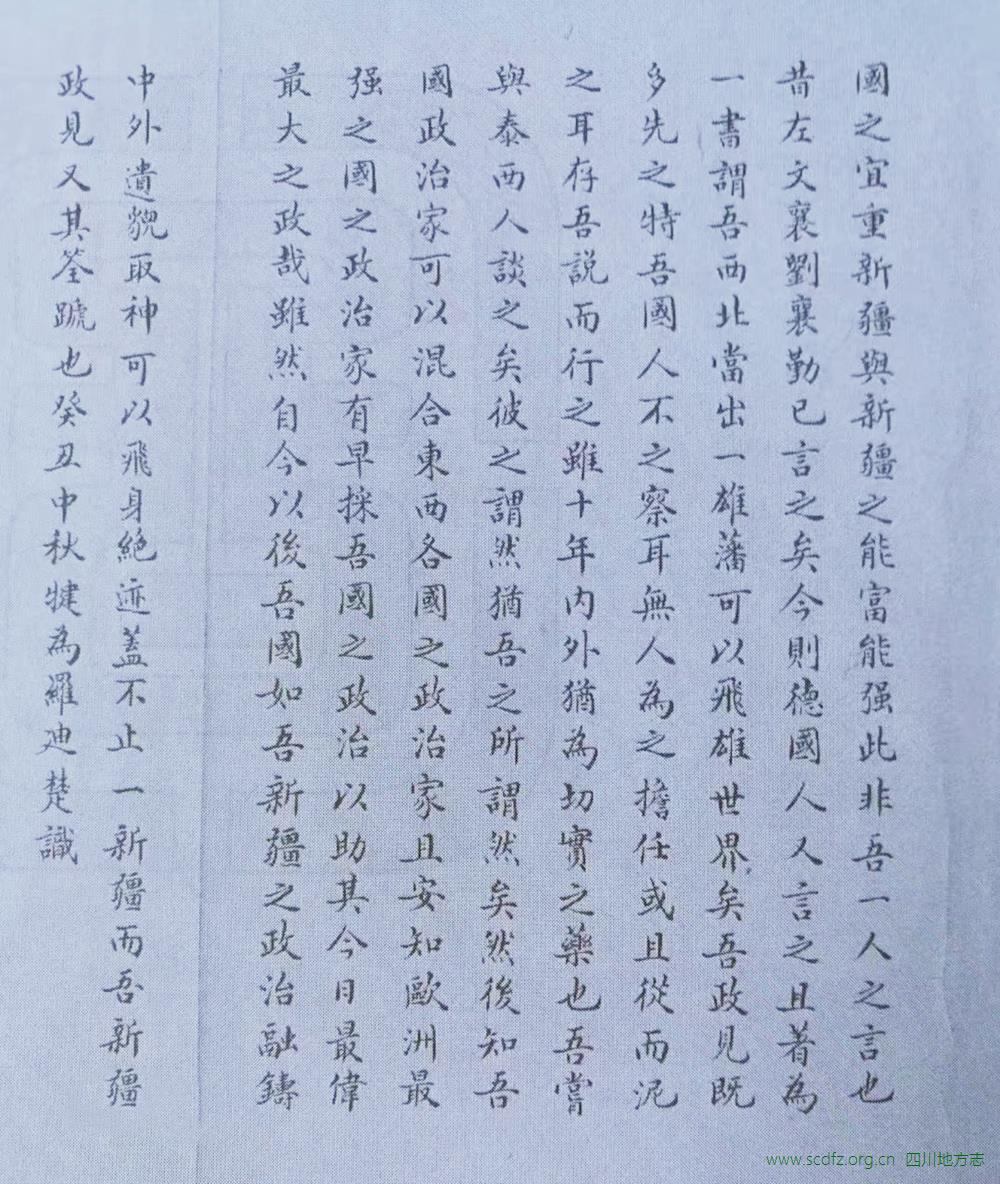 國之宜重新疆與新疆之能富能强此非吾一人之言也
昔左文襄劉襄勤已言之矣今則德國人人言之且著為
一書謂吾西北當出一雄藩可以飛雄世界矣吾政見既
多先之特吾國人不之察耳無人為之擔任或且從而泥
之耳存吾説而行之雖十年内外猶為切實之藥也吾嘗
與泰西人談之矣彼之謂然猶吾之所謂然矣然後知吾
國政治家可以混合東西各國之政治家且安知歐洲最
强之國之政治家有早採吾國之政治以助其今日最偉
最大之政哉雖然自今以後吾國如吾新疆之政治融鑄
中外遺貌取神可以飛身絶迹蓋不止一新疆而吾新疆
政見又其筌蹏也癸丑中秋犍為羅迪楚識
www.scdfz.org.cn 四川地方志